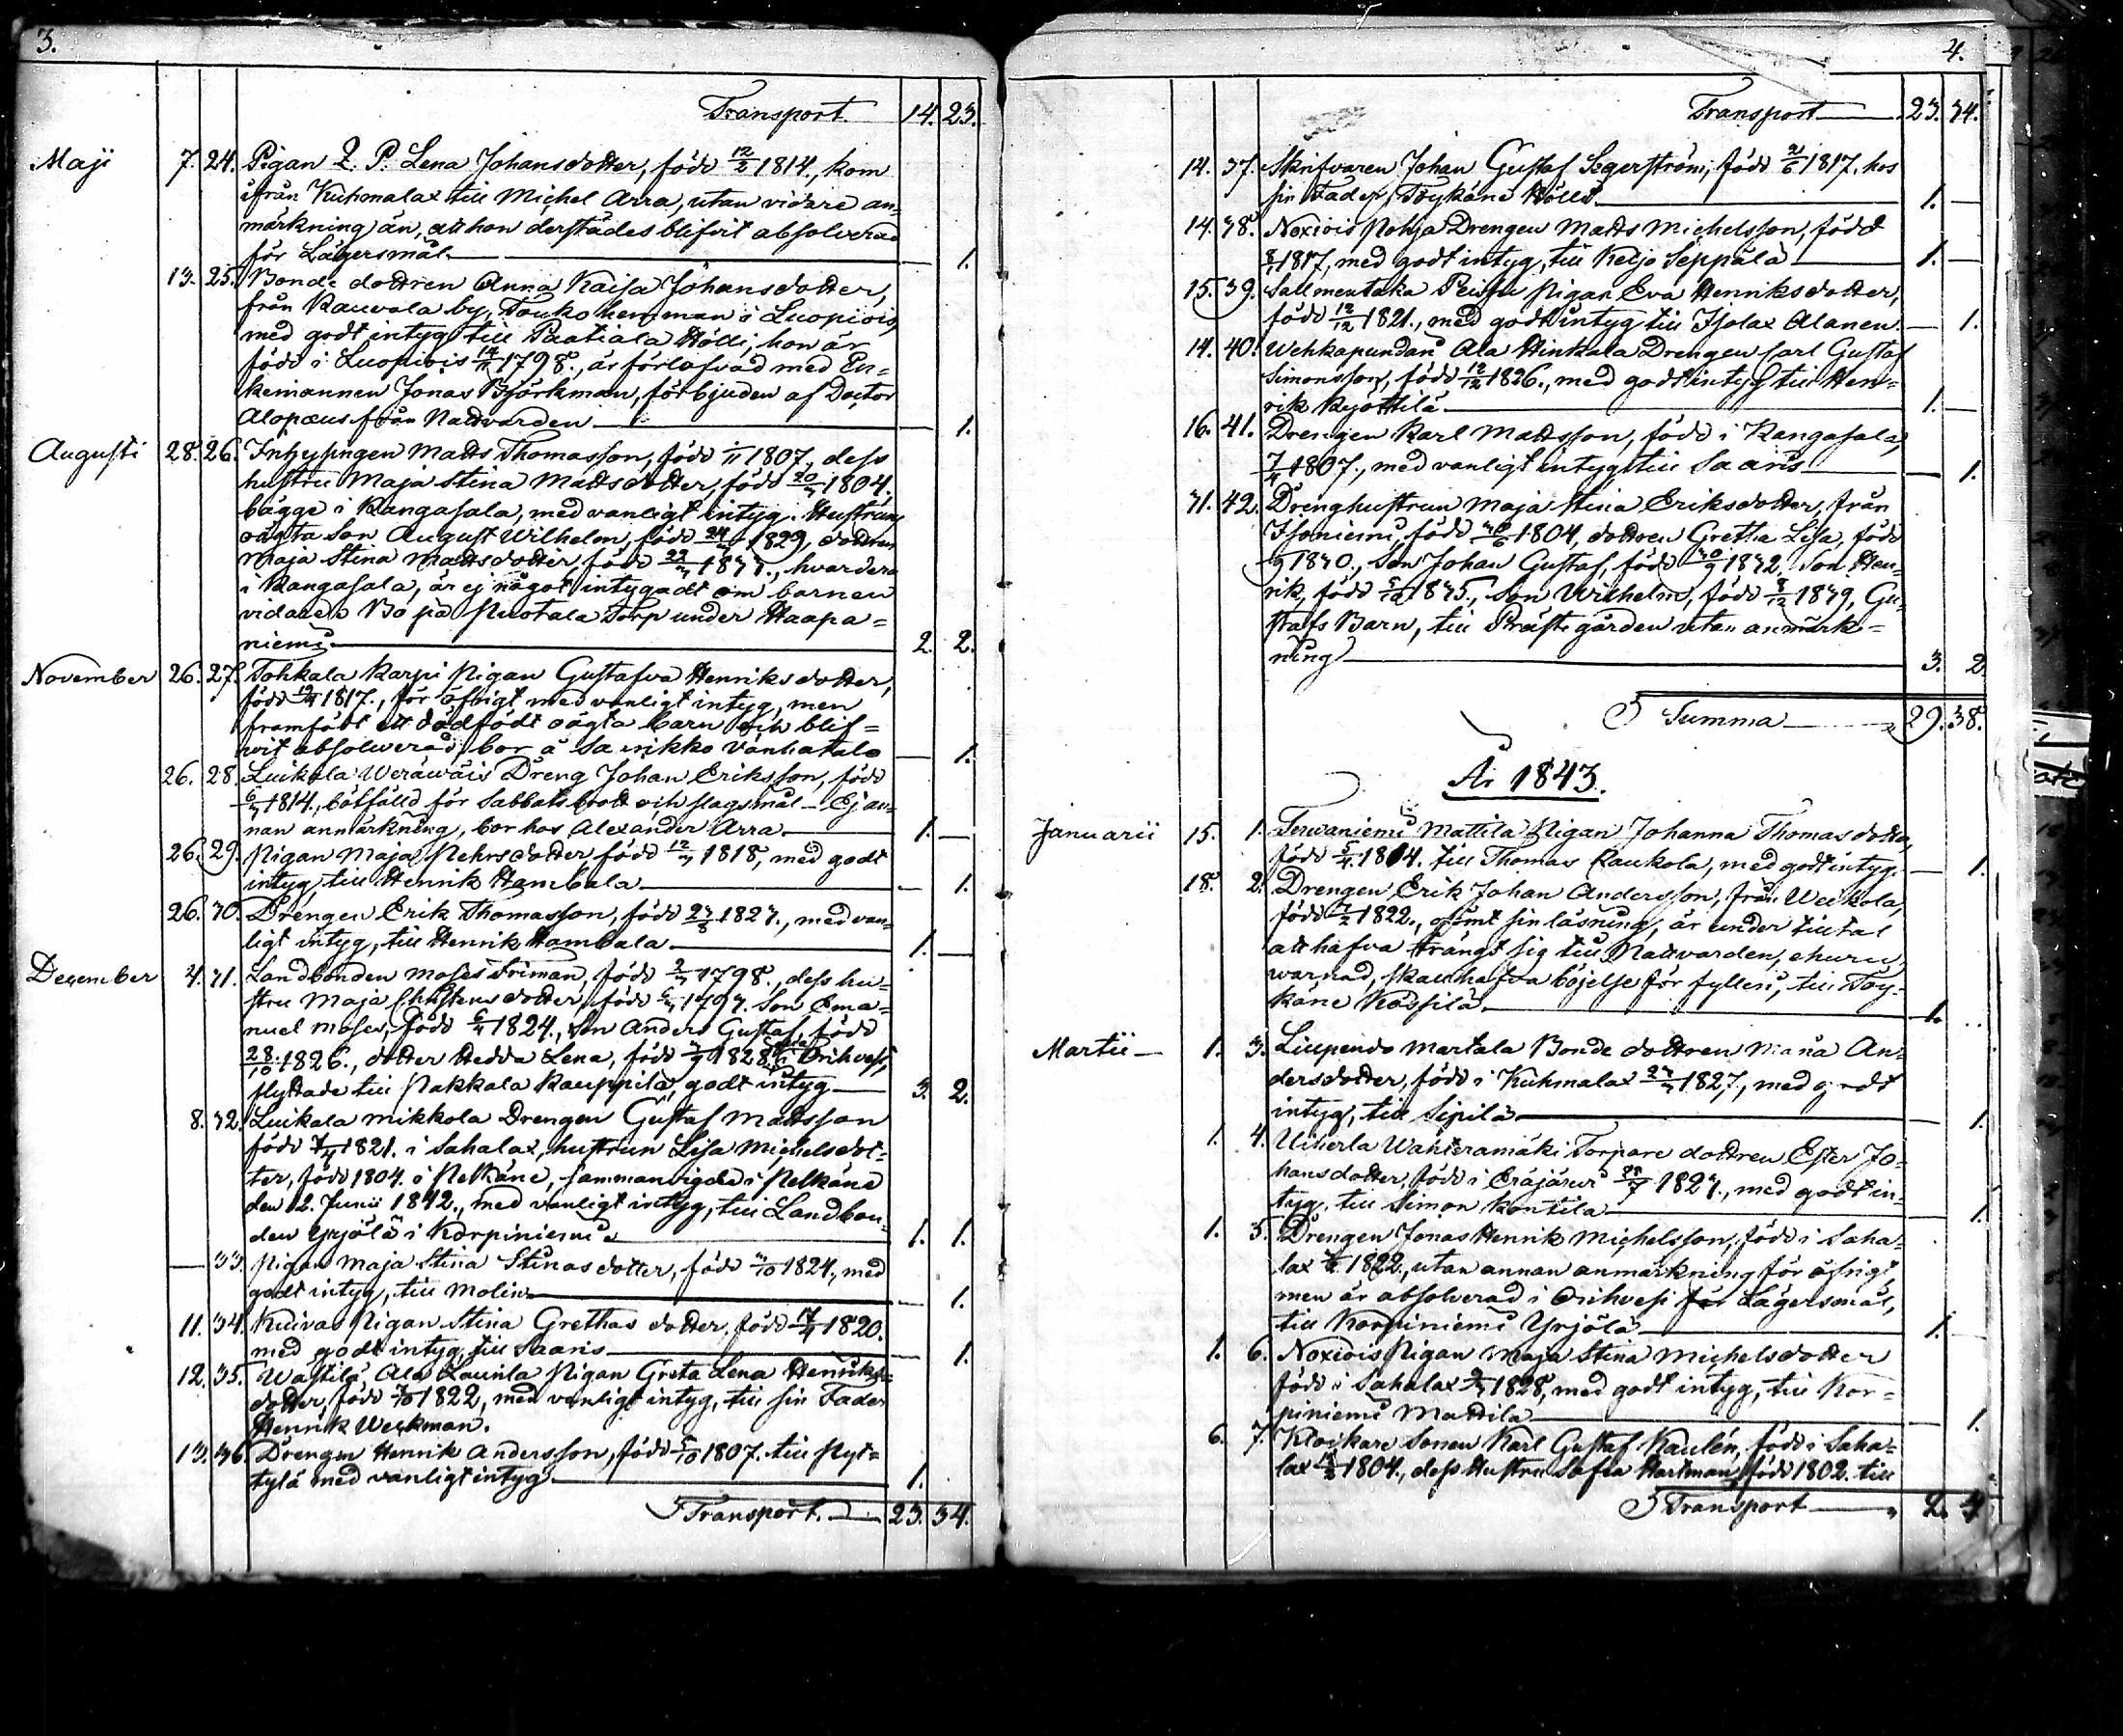 3.
Transport. 14. 23.
Maji 7. 24. Pigan Q. P. Lena Johansdotter, född 12/2 1814, kom
ifrån Kuhmalax till Michel Arra, utan vidare an=
märkning än, att hon derstädes blifvit absolverad
för Lägersmål. — 1.
13. 25. Bonde dottren Anna Kaisa Johansdotter,
från Rauvola by, Touko hemman i Luopiois,
med godt intyg till Paatiala Hölli, hon är
född i Luopiois 1798., är förlofvad med En=
kemannen Jonas Björkman, förbjuden af Doctor
Alopæus från Nattvarden. — 1.
Augusti 28. 26. Inhysingen Matts Thomasson, född 1807, dess
hustru Maja Stina Mattsdotter, född 1804.
bägge i Kangasala, med vanligt intyg. Hustruns
oägta Son August Wilhelm, född 1829, dottren
Maja Stina Mattsdotter, född hvardera
i Kangasala, är ej något intygadt om barnen
vidare. Bo på Ruotala Torp under Haapa=
niemi. 2. 2.
November 26. 27. Tohkala Karpi Pigan Gustafva Henriksdotter,
född 1817., för öfrigt med vanligt intyg, men
framfödt ett dödfödt oägta barn och blif=
vit absolverad, bor å Sarikko Vanhatalo — 1.
26. 28. Luikala Weräwäis Dreng Johan Eriksson, född
1814, bötfälld för Sabbatsbrott och slagsmål — Ej an=
nan anmärkning, bor hos Alexander Arra. 1. —
26. 29. Pigan Maja Pehrsdotter, född 1818, med godt
intyg, till Henrik Hambala — 1.
26. 30. Drengen Erik Thomasson, född 1823., med van=
ligt intyg, till Henrik Hambala. 1. —
December 4. 31. Landbonden Moses Friman, född 1798., dess hu=
stru Maja Christensdotter, född Son Ema=
nuel Moses, född 1824., Son Anders Gustaf, född
28/10 1826., dotter Hedda Lena, född 1828 i Orihvesi,
flyttade till Pakkala Kauppila, godt intyg — 3. 2.
8. 32. Luikala Mikkola Drengen Gustaf Mattsson
född 1821. i Sahalax, hustrun Lisa Michelsdot=
ter, född 1804. i Pelkäne, sammanvigde i Pelkäne
den 12. Junii 1842., med vanligt intyg, till Landbon=
den Yrjölä i Korpiniemi. 1. 1.
— 33. Pigan Maja Stina Stinasdotter, född 1824., med
godt intyg, till Molin — 1.
11. 34. Pigan Stina Grethasdotter, född 1820.
med godt intyg, till Saaris — 1.
12. 35. Wästilä, Ala Launila Pigan Greta Lena Henriks=
dotter, född 1822, med vanligt intyg, till sin Fader
Henrik Weckman.
13. 36. Drengen Henrik Andersson, född 1807. till Pyt=
tylä med vanligt intyg. 1.
Transport. 23. 34.
4.
Transport 23. 34.
14. 37. Skrifvaren Johan Gustaf Segerström, född 2/6 1817, hos
sin Fader, Töykäne Hölli. 1. —
14. 38. Noxiois Pohja Drengen Matts Michelsson, född
1817, med godt intyg, till Keljo Seppälä 1. —
15. 39. Sallmentaka Pigan Eva Henriksdotter,
född 12/12 1821., med godt intyg till Isolax Alanen. — 1.
14. 40. Wehkapundan Ala Hinkala Drengen Carl Gustaf
Simonsson, född 12/12 1826., med godt intyg till Hen=
rik Kyöttilä. 1. —
16. 41. Drengen Karl Mattsson, född i Kangasala,
1807., med vanligt intyg, till Saaris — 1.
31. 42. Drenghustrun Maja Stina Eriksdotter, från
Isoniemi, född 1804, dottren Gretha Lisa, född
1830., Son Johan Gustaf, född 1832. Son Hen=
rik, född 1835., Son Wilhelm, född 8/12 1839, Gu=
stafs Barn, till Prästgården utan anmärk=
ning. 3. 2.
Summa 29. 38.
År 1843.
Januarii 15. 1. Terwaniemi Mattila Pigan Johanna Thomasdotter,
född 1814. till Thomas Raukola, med godt intyg. — 1.
18. 2. Drengen Erik Johan Andersson, från Weikola,
född 1822., glömt sin läsning, är under tilltal
att hafva trängt sig till Nattvarden, ehuru
warnad, skall hafva böjelse för fylleri, till Töy=
käne Kässilä. 1.
Martii — 1. 3. Liupendo Martala Bonde dottren Maria An=
dersdotter, född i Kuhmalax 1827, med godt
intyg, till Sipilä — 1.
1. 4. Uiherla Wahteramäki Torpare dottren Ester Jo=
hansdotter, född i Eräjärvi med godt in=
tyg, till Simon Konttila 1.
1. 5. Drengen Jonas Henrik Michelsson, född i Saha=
lax 1822., utan annan anmärkning för öfrigt,
men är absolverad i Orihvesi för Lägersmål,
till Korpiniemi Yrjölä 1. —
1. 6. Noxiois Pigan Maja Stina Michelsdotter
född i Sahalax 1828, med godt intyg, till Kor=
piniemi Mattila — 1.
6. 7. Klockare Sonen Karl Gustaf Kaulén, född i Saha=
lax 1804., dess Hustru Sofia Hartman, född 1802. till
Transport 2. 4